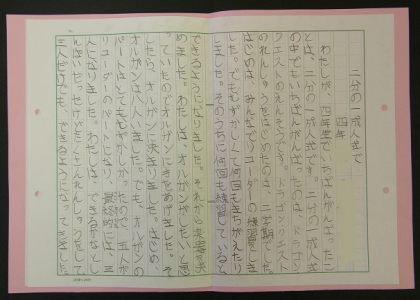 二分の一成人式で
四年
わたしが、四年生でいちばんがんばったこ
とは、二分の一成人式です。二分の一成人式
の中でもいちばんがんばったのは、ドラゴン
クエストのえんそうです。ドラゴンクエスト
のれんしゅうをはじめたのは、二学期でした。
はじめは、みんなでリコーダーの練習をしま
した。でもむずかしくて何回もまちがえたり
しました。そのうちに何回も練習していると
できるようになりました。それから楽器を決
めました。わたしは、オルガンがしたいと思
っていたのでオルガンに手をあげました。そ
したら、オルガンに決まりました。はじめ、
オルガンは八人いました。でも、オルガンの
パートはとてもむずかしかったので、五人が
リコーダーのパートになり、
人になりました。わたしは、できるかなとし
んぱいだったけどたくさんれんしゅうをして
三人だけでも、できるようになってきました。